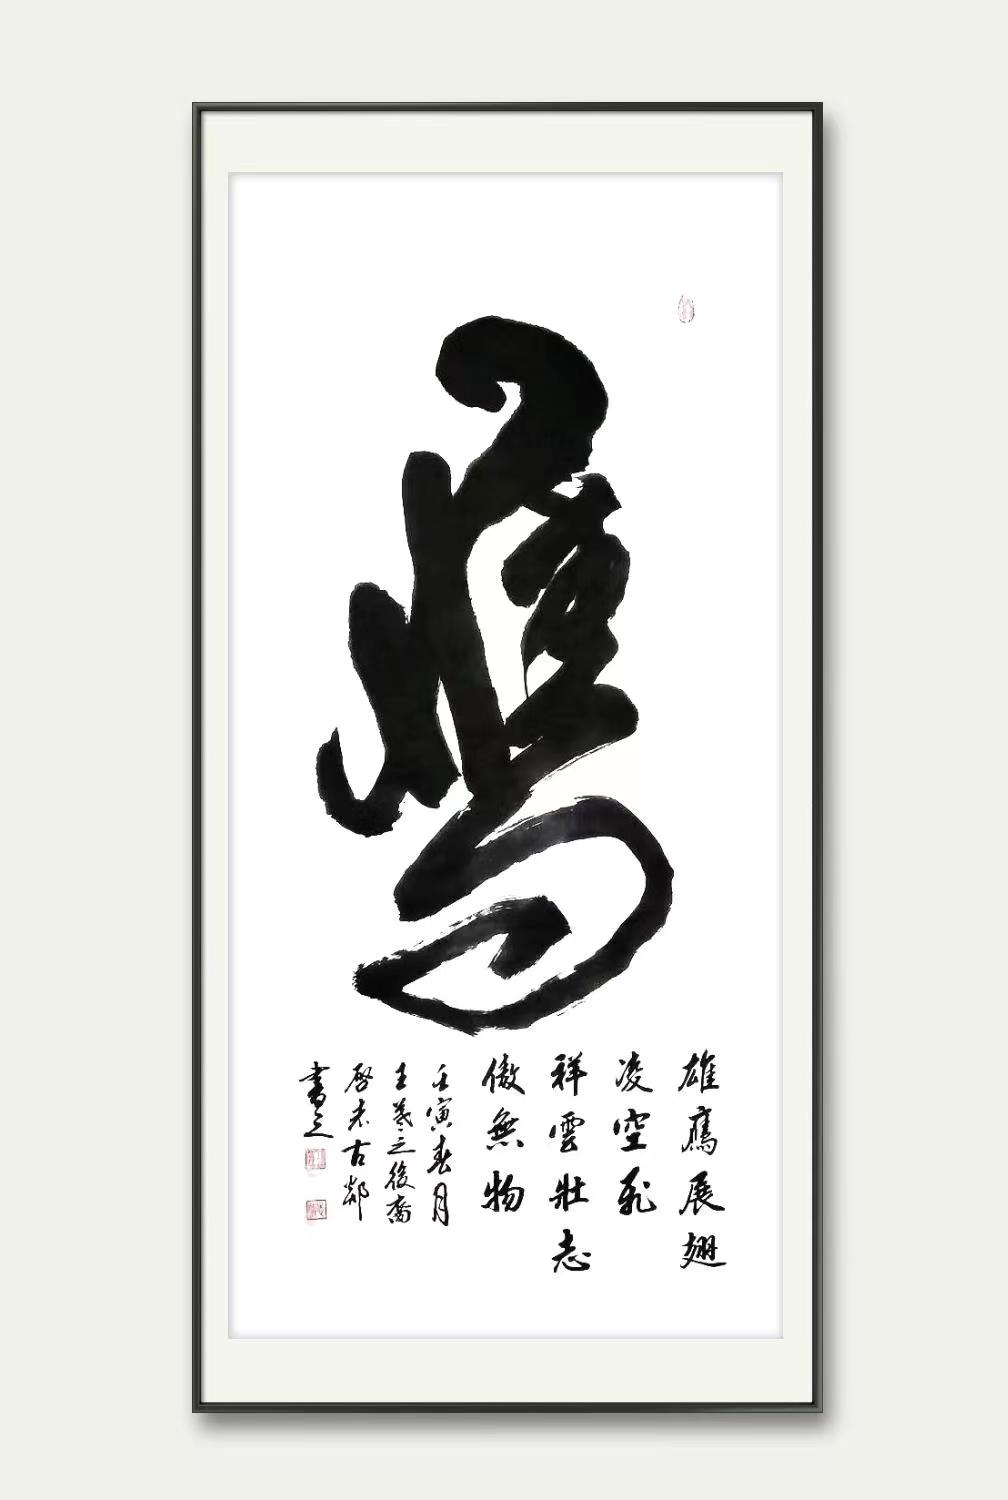 鷹
雄鷹展翅
凌空飛
祥雲壯志
傲無物
壬寅春月
王羲之後裔
啓老古鄴
書之